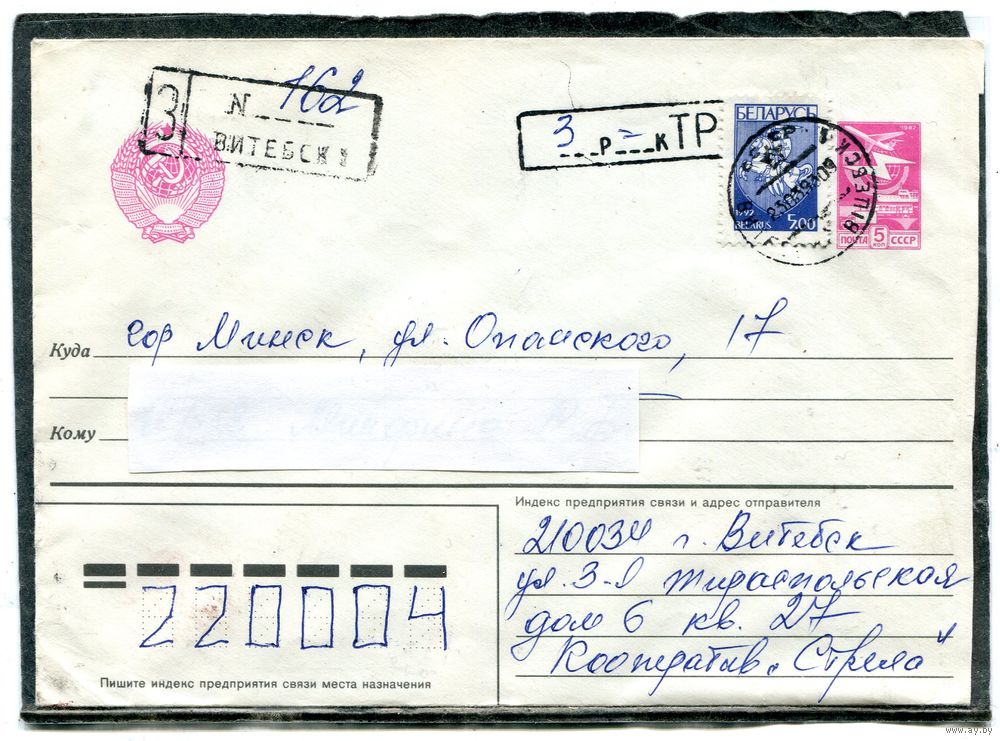 З N 162
ВИТЕБСК 1
3 р = к ТР
БЕЛАРУСЬ
1992
BELARUS 5.00
1982
ПОЧТА 5 КОП СССР
Куда гор Минск, ул. Опанского, 17
Кому
Индекс предприятия связи и адрес отправителя
210034 г. Витебск
ул. 3-я Тираспольская
дом 6 кв. 27
Кооператив „Стрела"
220004
Пишите индекс предприятия связи места назначения
www.ay.by